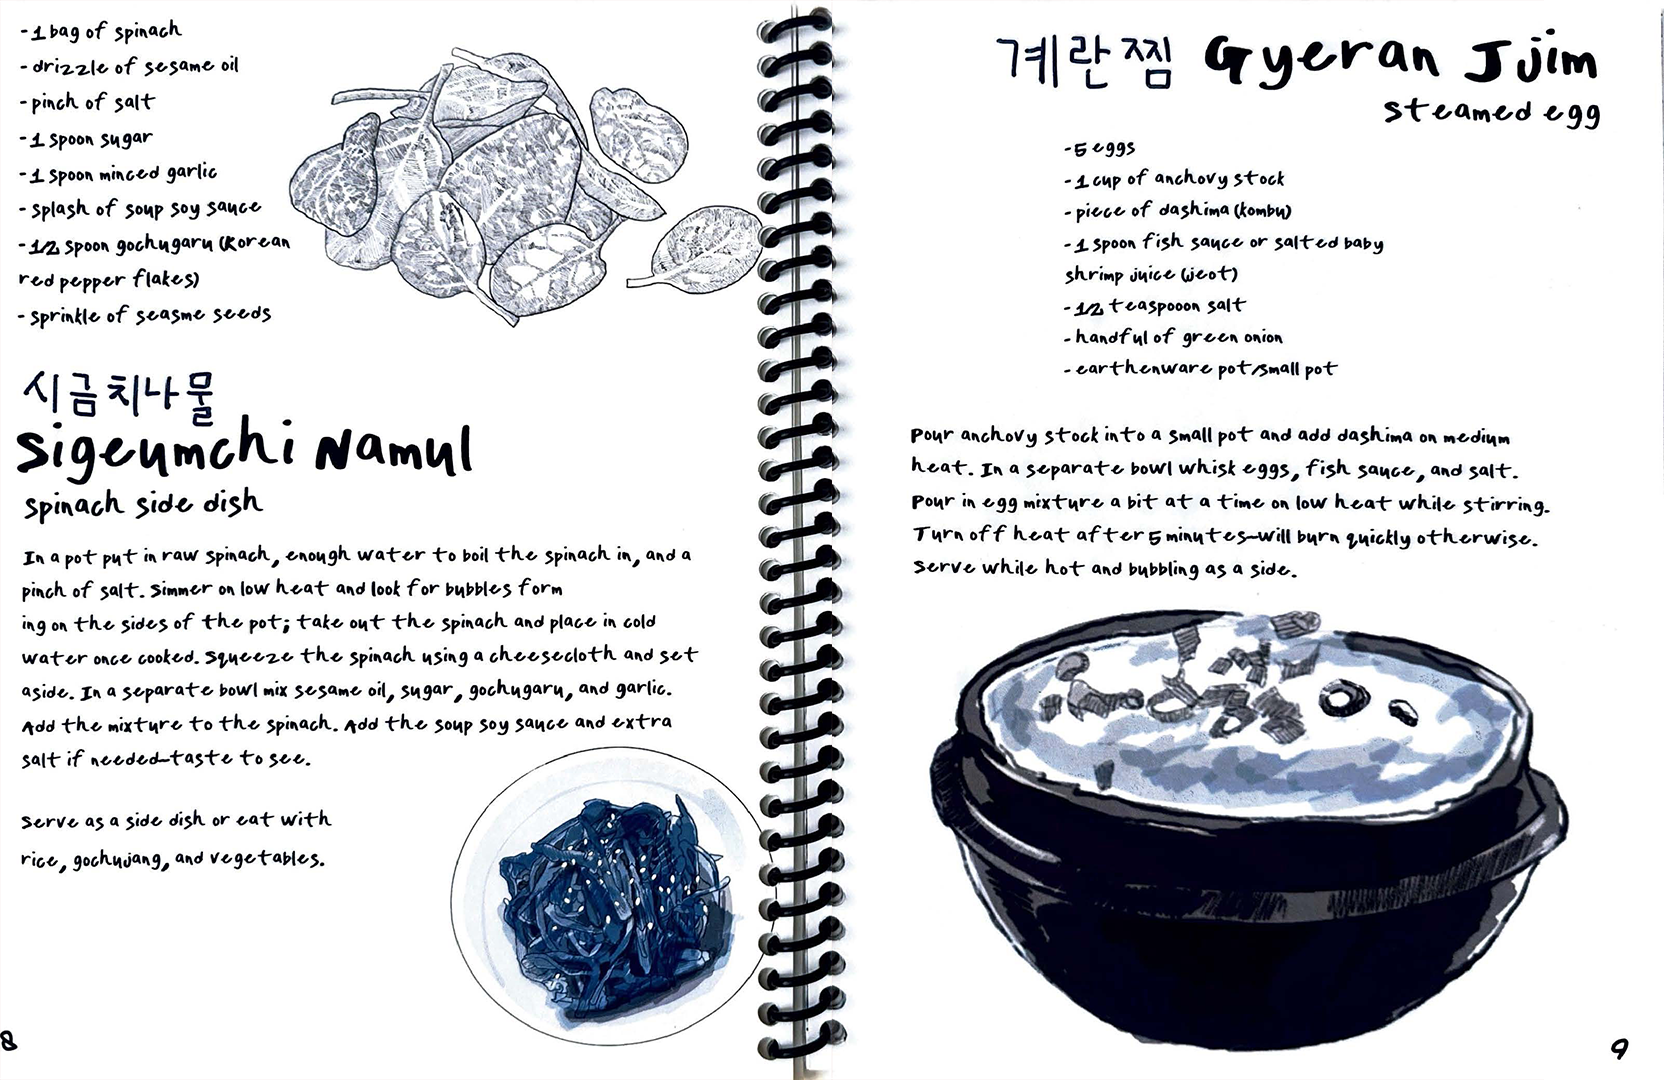 -1 bag of spinach
-drizzle of sesame oil
-pinch of salt
-1 spoon sugar
-1 spoon minced garlic
-splash of soup soy sauce
-1/2 spoon gochugaru (Korean
red pepper flakes)
-sprinkle of seasme seeds
시금치나물
Sigeumchi Namul
spinach side dish
In a pot put in raw spinach, enough water to boil the spinach in, and a
pinch of salt. Simmer on low heat and look for bubbles form
ing on the sides of the pot; take out the spinach and place in cold
water once cooked. Squeeze the spinach using a cheesecloth and set
aside. In a separate bowl mix sesame oil, sugar, gochugaru, and garlic.
Add the mixture to the spinach. Add the soup soy sauce and extra
salt if needed—taste to see.
Serve as a side dish or eat with
rice, gochujang, and vegetables.
8
계란찜 Gyeran Jjim
steamed egg
-5 eggs
-1 cup of anchovy stock
-piece of dashima (kombu)
-1 spoon fish sauce or salted baby
shrimp juice (jeot)
-1/2 teaspooon salt
-handful of green onion
-earthenware pot/small pot
Pour anchovy stock into a small pot and add dashima on medium
heat. In a separate bowl whisk eggs, fish sauce, and salt.
Pour in egg mixture a bit at a time on low heat while stirring.
Turn off heat after 5 minutes—will burn quickly otherwise.
Serve while hot and bubbling as a side.
9